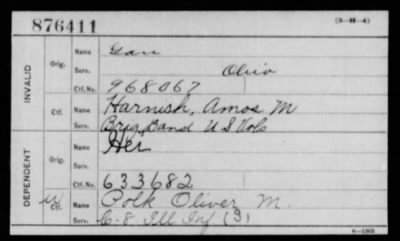 876411
(3-MM-4)
INVALID
Orig.
Name Gan
Serv. Ohio
Ctf. No. 968067
Ctf.
Name Harnish, Amos M
Serv. Brig. Band U S Vols
DEPENDENT
Orig.
Name Her
Serv.
Ctf. No. 633682
Ctf.
Name Polk Oliver M.
Serv. C-8 Ill Inf (3)